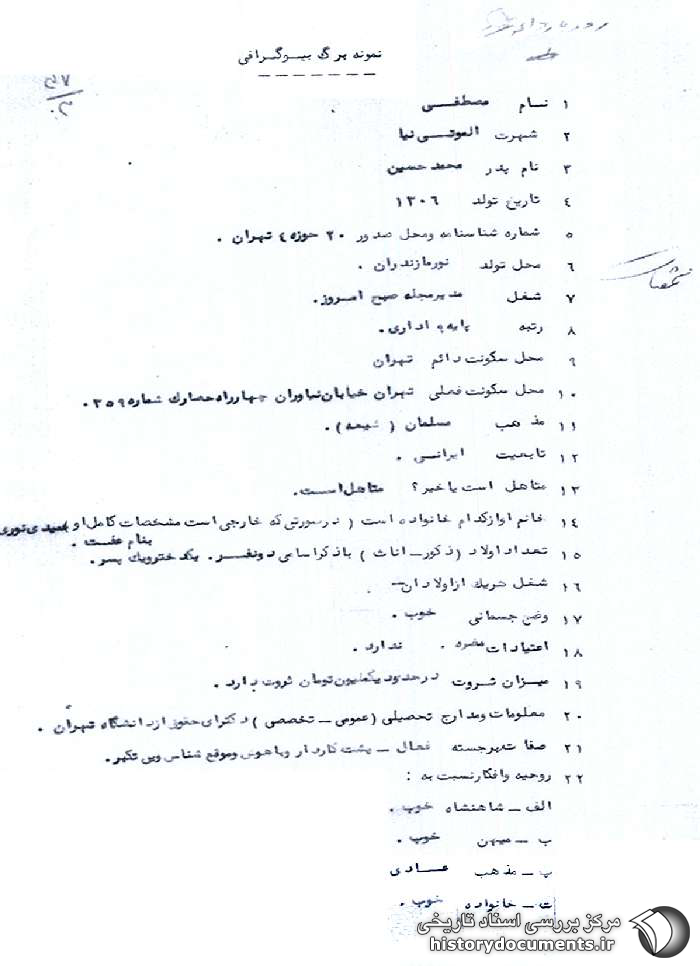 نمونه برگ بیوگرافی
۱ نام مصطفی
۲ شهرت الموتی نیا
۳ نام پدر محمدحسین
٤ تاریخ تولد ۱۳۰٦
٥ شماره شناسنامه ومحل صدور ۲۰ حوزه ٤ تهران .
٦ محل تولد نورمازندران .
۷ شغل مدیرمجله صبح امروز.
۸ رتبه پایه ۹ اداری.
۹ محل سکونت دائم تهران
۱۰ محل سکونت فعلی تهران خیابان نیاوران چهارراه حصارک شماره ۳٥۹ .
۱۱ مذهب مسلمان ( شیعه ) .
۱۲ تابعیت ایرانی .
۱۳ متاهل است یاخیر؟ متاهل است.
۱٤ خانم اوازکدام خانواده است ( درصورتی که خارجی است مشخصات کامل او عمیدی نوری
بنام عفت .
۱٥ تعداد اولاد (ذکور_ اناث ) باذکراسامی دونفر. یکدخترویک پسر.
۱٦ شغل هریک ازاولادان_
۱۷ وضع جسمانی خوب .
۱۸ اعتیادات مضره . ندارد .
۱۹ میزان ثروت درحدود یکملیون تومان ثروت دارد.
۲۰ معلومات ومدارج تحصیلی (عمومی _ تخصصی ) دکترای حقوق ازدانشگاه تهران .
۲۱ صفات برجسته فعال _ پشت کاردار وباهوش وموقع شناس وبی تکبر.
۲۲ روحیه وافکارنسبت به :
الف _ شاهنشاه خوب .
ب _ میهن خوب .
پ _ مذهب عادی
ت _ خانواده خوب .
مرکز بررسی اسناد تاریخی
historydocuments.ir